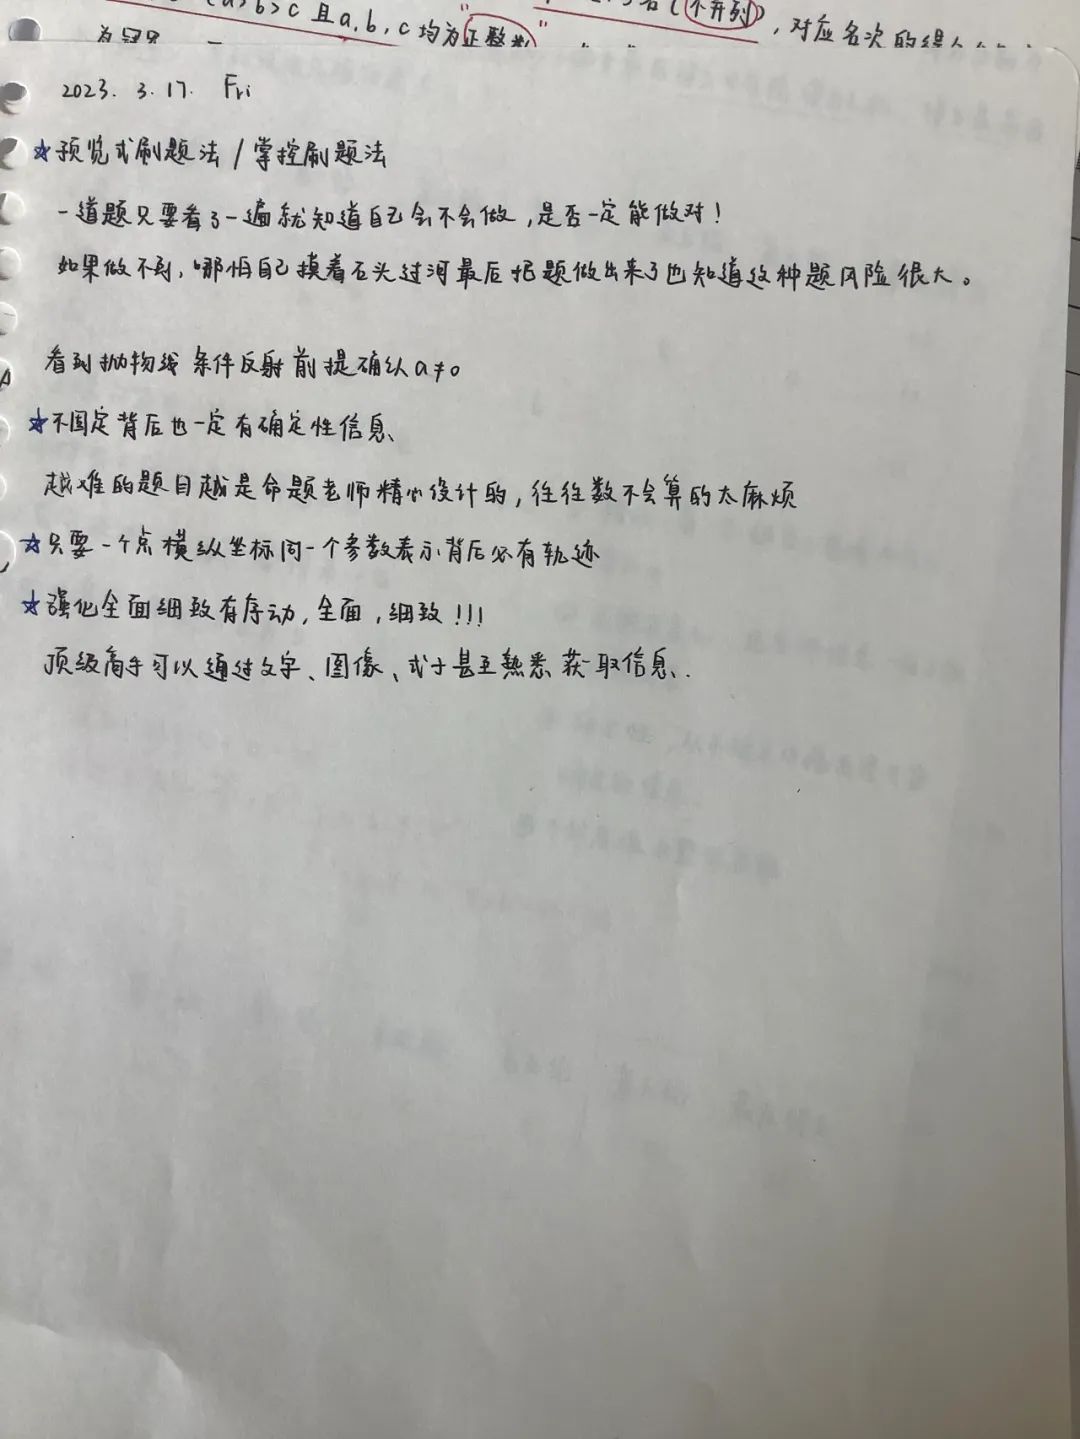 a>b>c 且a,b,c均为正整数
(不并列),对应名次的得
2023. 3. 17. Fri
☆预览式刷题法/掌控刷题法
一道题只要看了一遍就知道自己会不会做,是否一定能做对!
如果做不到,哪怕自己摸着石头过河最后把题做出来了也知道这种题风险很大。
看到抛物线条件反射前提确认a≠0
☆不固定背后也一定有确定性信息、
越难的题目越是命题老师精心设计的,往往数不会算的太麻烦
☆只要一个点横纵坐标同一个参数表示背后必有轨迹
☆强化全面细致有序动,全面,细致!!!
顶级高手可以通过文字、图像、式子甚至熟悉获取信息、.